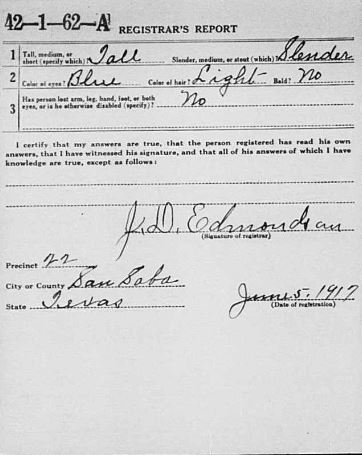 42-1-62-A REGISTRAR'S REPORT
1 Tall, medium, or short (specify which)? Tall Slender, medium, or stout (which)? Slender
2 Color of eyes? Blue Color of hair? Light Bald? No
3 Has person lost arm, leg, hand, foot, or both eyes, or is he otherwise disabled (specify)? No
I certify that my answers are true, that the person registered has read his own
answers, that I have witnessed his signature, and that all of his answers of which I have
knowledge are true, except as follows:
J. D. Edmondson
(Signature of registrar)
Precinct 22
City or County San Saba
State Texas
June 5, 1917
(Date of registration)